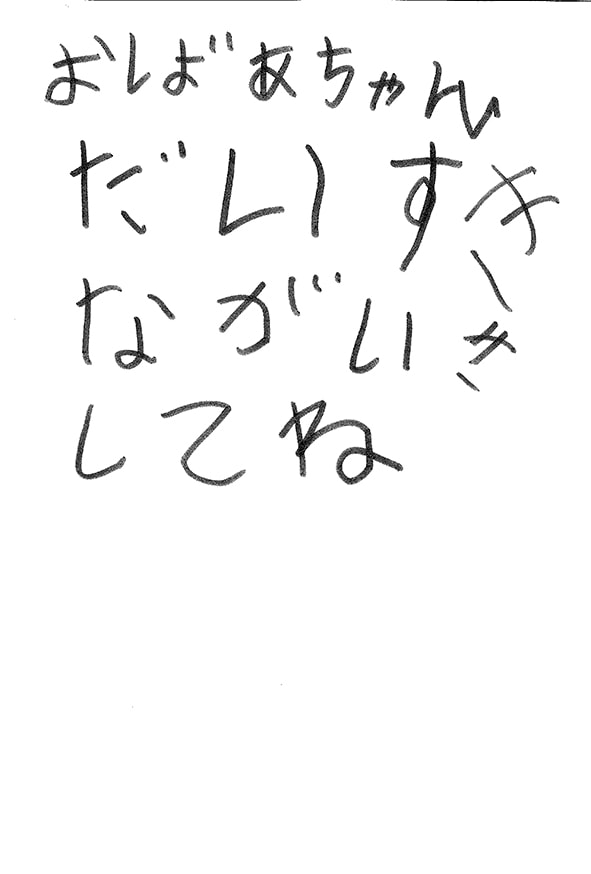 おばあちゃん
だいすき
ながいき
してね